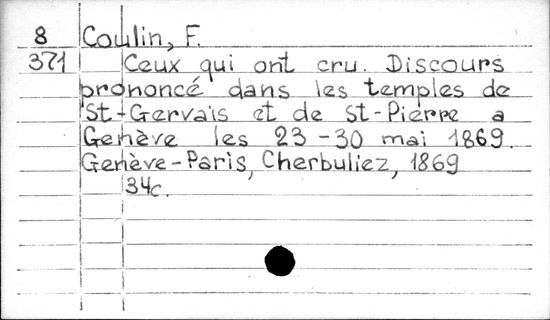 8 Coulin, F.
371 Ceux qui ont cru. Discours
prononcé dans les temples de
St-Gervais et de St-Pierre a
Genève les 23-30 mai 1869.
Genève-Paris, Cherbuliez, 1869
34c.